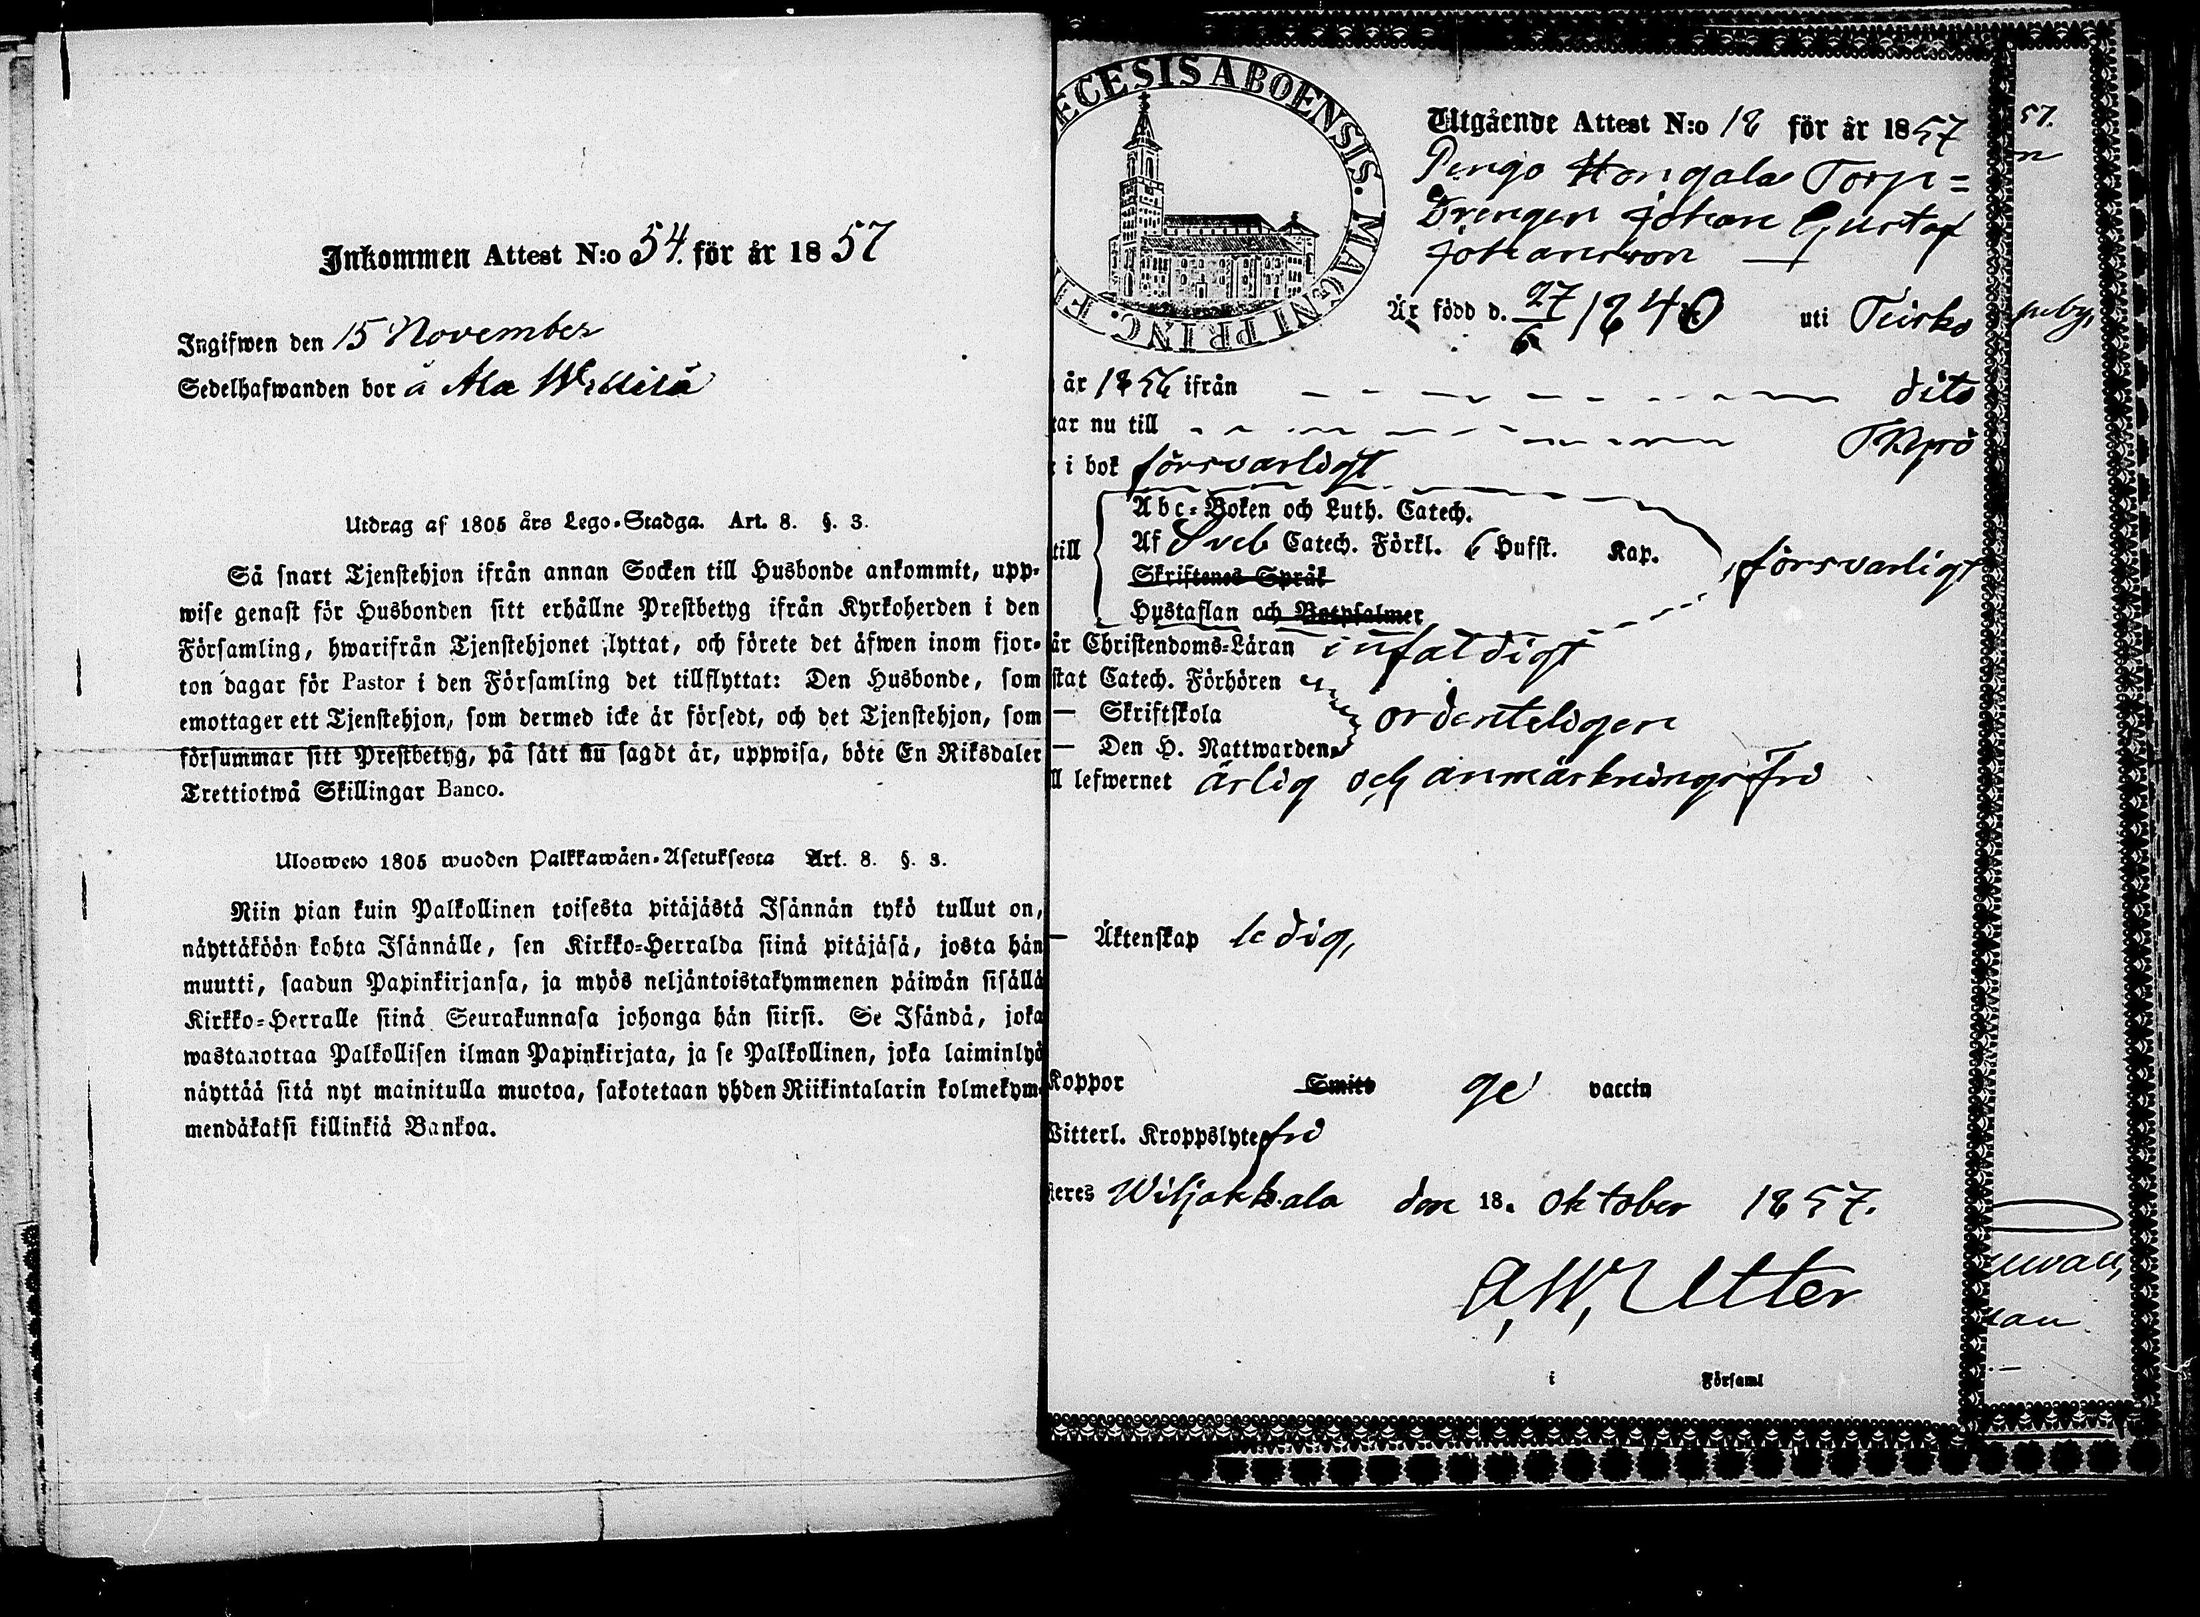 Inkommen Attest N:o 54. för år 1857
Ingifwen den 15 November
Sedelhafwanden bor å Ala
Utdrag af 1805 års Lego-Stadga. Art. 8. §. 3.
Så snart Tjenstehjon ifrån annan Socken till Husbonde ankommit, upp-
wise genast för Husbonden sitt erhållne Prestbetyg ifrån Kyrkoherden i den
Församling, hwarifrån Tjenstehjonet flyttat, och förete det äfwen inom fjor-
ton dagar för Pastor i den Församling det tillflyttat: Den Husbonde, som
emottager ett Tjenstehjon, som dermed icke är försedt, och det Tjenstehjon, som
försummar sitt Prestbetyg, på sätt nu sagdt är, uppwisa, böte En Riksdaler
Trettiotwå Skillingar Banco.
Ulosweto 1805 wuoden Palkkawäen-Asetuksesta Art. 8. §. 3.
Niin pian kuin Palkollinen toisesta pitäjästä Isännän tykö tullut on,
näyttäköön kohta Isännälle, sen Kirkko-Herralda siinä pitäjäsä, josta hän
muutti, saadun Papinkirjansa, ja myös neljäntoistakymmenen päiwän sisällä
Kirkko-Herralle siinä Seurakunnasa johonga hän siirsi. Se Isändä, joka
wastanottaa Palkollisen ilman Papinkirjata, ja se Palkollinen, joka laiminlyö
näyttää sitä nyt mainitulla muotoa, sakotetaan yhden Riikintalarin kolmekym-
mendäkaksi killinkiä Bankoa.
ECESIS ABOENSIS. MAGNI PRINC. F
Utgående Attest N:o 18 för år 1857
Torp=
Drengen Johan Gustaf
Johansson
Är född d. 27/6 1840 uti
är 1856 ifrån dito
tar nu till
i bok försvarligt
Abc-Boken och Luth. Catech.
till Af Sveb Catech. Förkl. 6 Hufst. Kap. försvarligt
Skriftenes Språk
Hustaflan och Botpsalmer
är Christendoms-Läran infaldigt
stat Catech. Förhören
— Skriftskola ordenteligen
— Den H. Nattwarden
ll lefwernet ärlig och anmärkningsfri
— Äktenskap ledig,
Koppor Smitt ge vaccin
Witterl. Kroppslyte fri
steres Wiljakkala den 18. Oktober 1857.
A, W, Utter
i Församl
57.